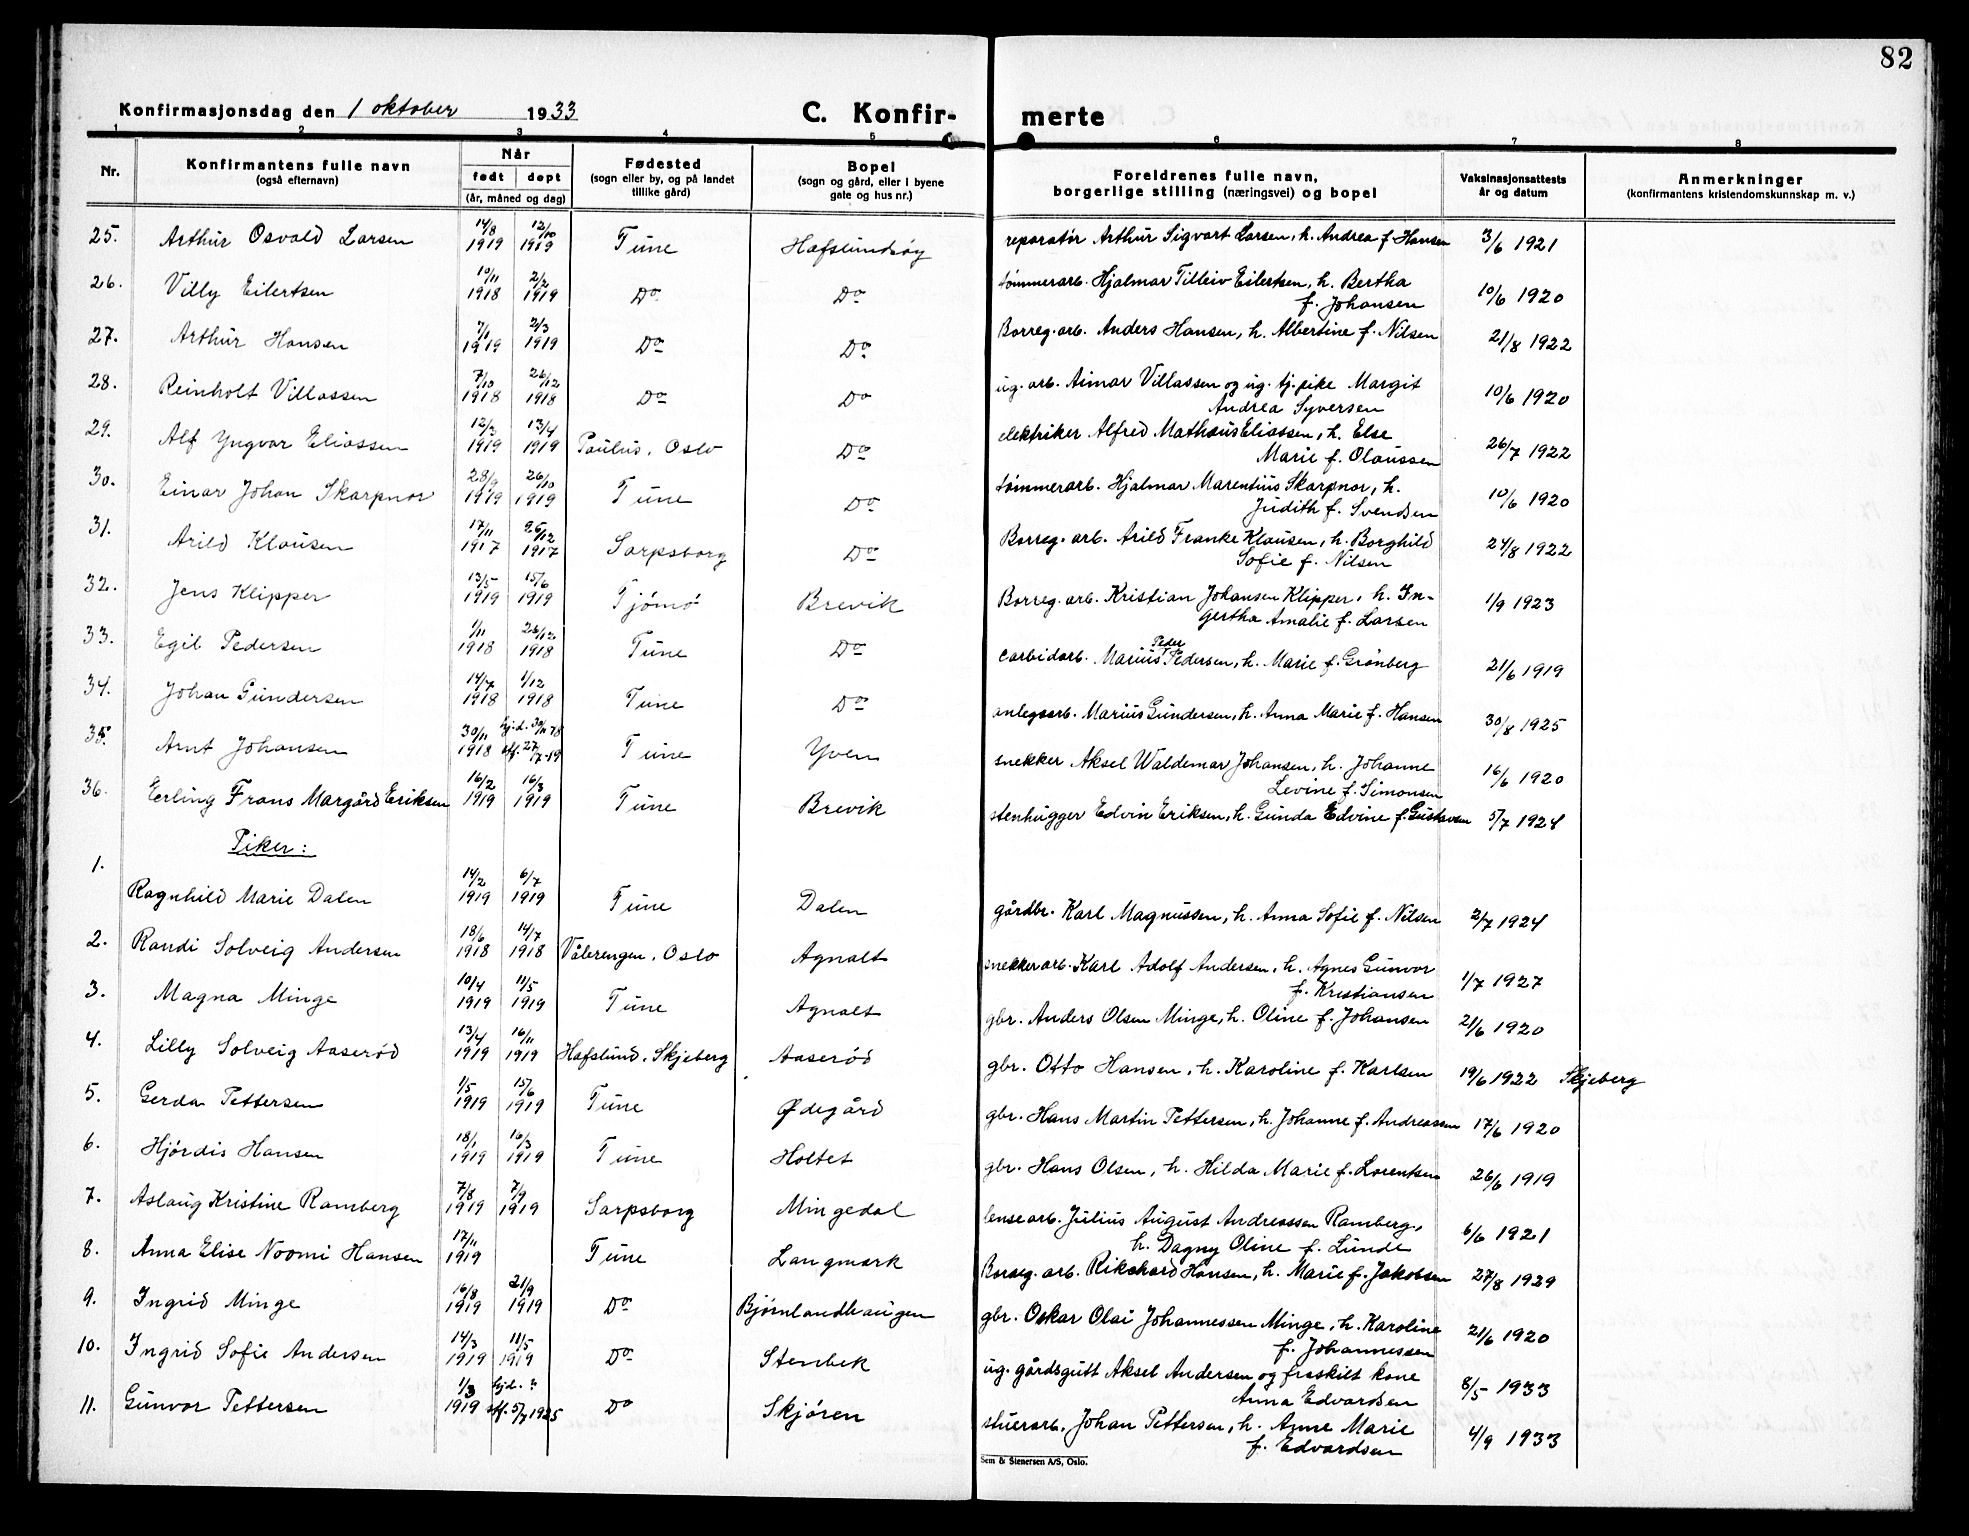 82
Konfirmasjonsdag den 1 oktober 1933 C. Konfir- merte
1 2 3 4 5 6 7 8
Nr. Konfirmantens fulle navn (også efternavn) Når født døpt (år, måned og dag) Fødested (sogn eller by, og på landet tillike gård) Bopel (sogn og gård, eller i byene gate og hus nr.) Foreldrenes fulle navn, borgerlige stilling (næringsvei) og bopel Vaksinasjonsattests år og datum Anmerkninger (konfirmantens kristendomskunnskap m. v.)
25. Arthur Osvald Larsen 14/8 1919 12/10 1919 Tune Hafslundsøy reparatør Arthur Sigvart Larsen, h. Andrea f. Hansen 3/6 1921
26. Villy Eilertsen 10/11 1918 2/2 1919 Do Do tømmerarb. Hjalmar Tilleiv Eilertsen, h. Bertha
f. Johansen 10/6 1920
27. Arthur Hansen 7/1 1919 2/3 1919 Do Do Borreg. arb. Anders Hansen, h. Albertine f. Nilsen 21/8 1922
28. Reinholt Villassen 7/10 1918 26/12 1918 Do Do ug. arb. Aimar Villassen og ug. tj.pike Margit
Andrea Syversen 10/6 1920
29. Alf Yngvar Eliassen 12/3 1919 13/4 1919 Paulus, Oslo Do elektriker Alfred Mathæus Eliassen, h. Else
Marie f. Olaussen 26/7 1922
30. Einar Johan Skarpnor 28/9 1919 26/10 1919 Tune Do tømmerarb. Hjalmar Marentius Skarpnor, h.
Judith f. Svendsen 10/6 1920
31. Arild Klausen 17/11 1917 26/12 1917 Sarpsborg Do Borreg. arb. Arild Franke Klausen, h. Borghild
Sofie f. Nilsen 24/8 1922
32. Jens Klipper 13/5 1919 15/6 1919 Tjømø Brevik Borreg. arb. Kristian Johansen Klipper, h. In-
gertha Amalie f. Larsen 1/9 1923
33. Egil Pedersen 1/11 1918 26/12 1918 Tune Do carbidarb. Marius Peder Pedersen, h. Marie f. Grønberg 21/6 1919
34. Johan Gundersen 14/7 1918 1/12 1918 Tune Do anlegsarb. Marius Gundersen, h. Anna Marie f. Hansen 30/8 1925
35. Arnt Johansen 30/11 1918 hj.d. 30/11 18 stf. 27/7-19 Tune Yven snekker Aksel Waldemar Johansen, h. Johanne
Levine f. Simonsen 16/6 1920
36. Eerling Frans Margård Eriksen 16/2 1919 16/3 1919 Tune Brevik stenhugger Edvin Eriksen, h. Gunda Edvine f. Gustavsen 5/7 1924
Piker:
1. Ragnhild Marie Dalen 14/2 1919 6/7 1919 Tune Dalen gårdbr. Karl Magnussen, h. Anna Sofie f. Nilsen 2/7 1924
2. Randi Solveig Andersen 18/6 1918 14/7 1918 Vålerengen, Oslo Agnalt snekkerarb. Karl Adolf Andersen, h. Agnes Gunvor
f. Kristiansen 1/7 1927
3. Magna Minge 10/4 1919 11/5 1919 Tune Agnalt gbr. Anders Olsen Minge, h. Oline f. Johansen 21/6 1920
4. Lilly Solveig Aaserød 13/4 1919 16/11 1919 Hafslund, Skjeberg Aaserød gbr. Otto Hansen, h. Karoline f. Karlsen 19/6 1922 Skjeberg
5. Gerda Pettersen 1/5 1919 15/6 1919 Tune Ødegård gbr. Hans Martin Pettersen, h. Johanne f. Andreassen 17/6 1920
6. Hjørdis Hansen 18/1 1919 16/3 1919 Tune Holtet gbr. Hans Olsen, h. Hilda Marie f. Lorentsen 26/6 1919
7. Aslaug Kristine Ramberg 7/8 1919 7/9 1919 Sarpsborg Mingedal lensearb. Julius August Andreassen Ramberg,
h. Dagny Oline f. Lunde 6/6 1921
8. Anna Elise Noomi Hansen 17/11 1919 Tune Langmark Borreg. arb. Rikchard Hansen, h. Marie f. Jakobsen 27/8 1929
9. Ingrid Minge 16/8 1919 21/9 1919 Do Bjørnlandhaugen gbr. Oskar Olai Johannessen Minge, h. Karoline
f. Johannessen 21/6 1920
10. Ingrid Sofie Andersen 14/3 1919 11/5 1919 Do Stenbek ug. gårdsgutt Aksel Andersen og fraskilt kone
Anna Edvardsen 8/5 1933
11. Gunvor Pettersen 1/3 1919 hj.d. ? stf. 5/7 1925 Do Skjøren stuerarb. Johan Pettersen, h. Anne Marie
f. Edvardsen 4/9 1933
Sem & Stenersen A/S, Oslo.